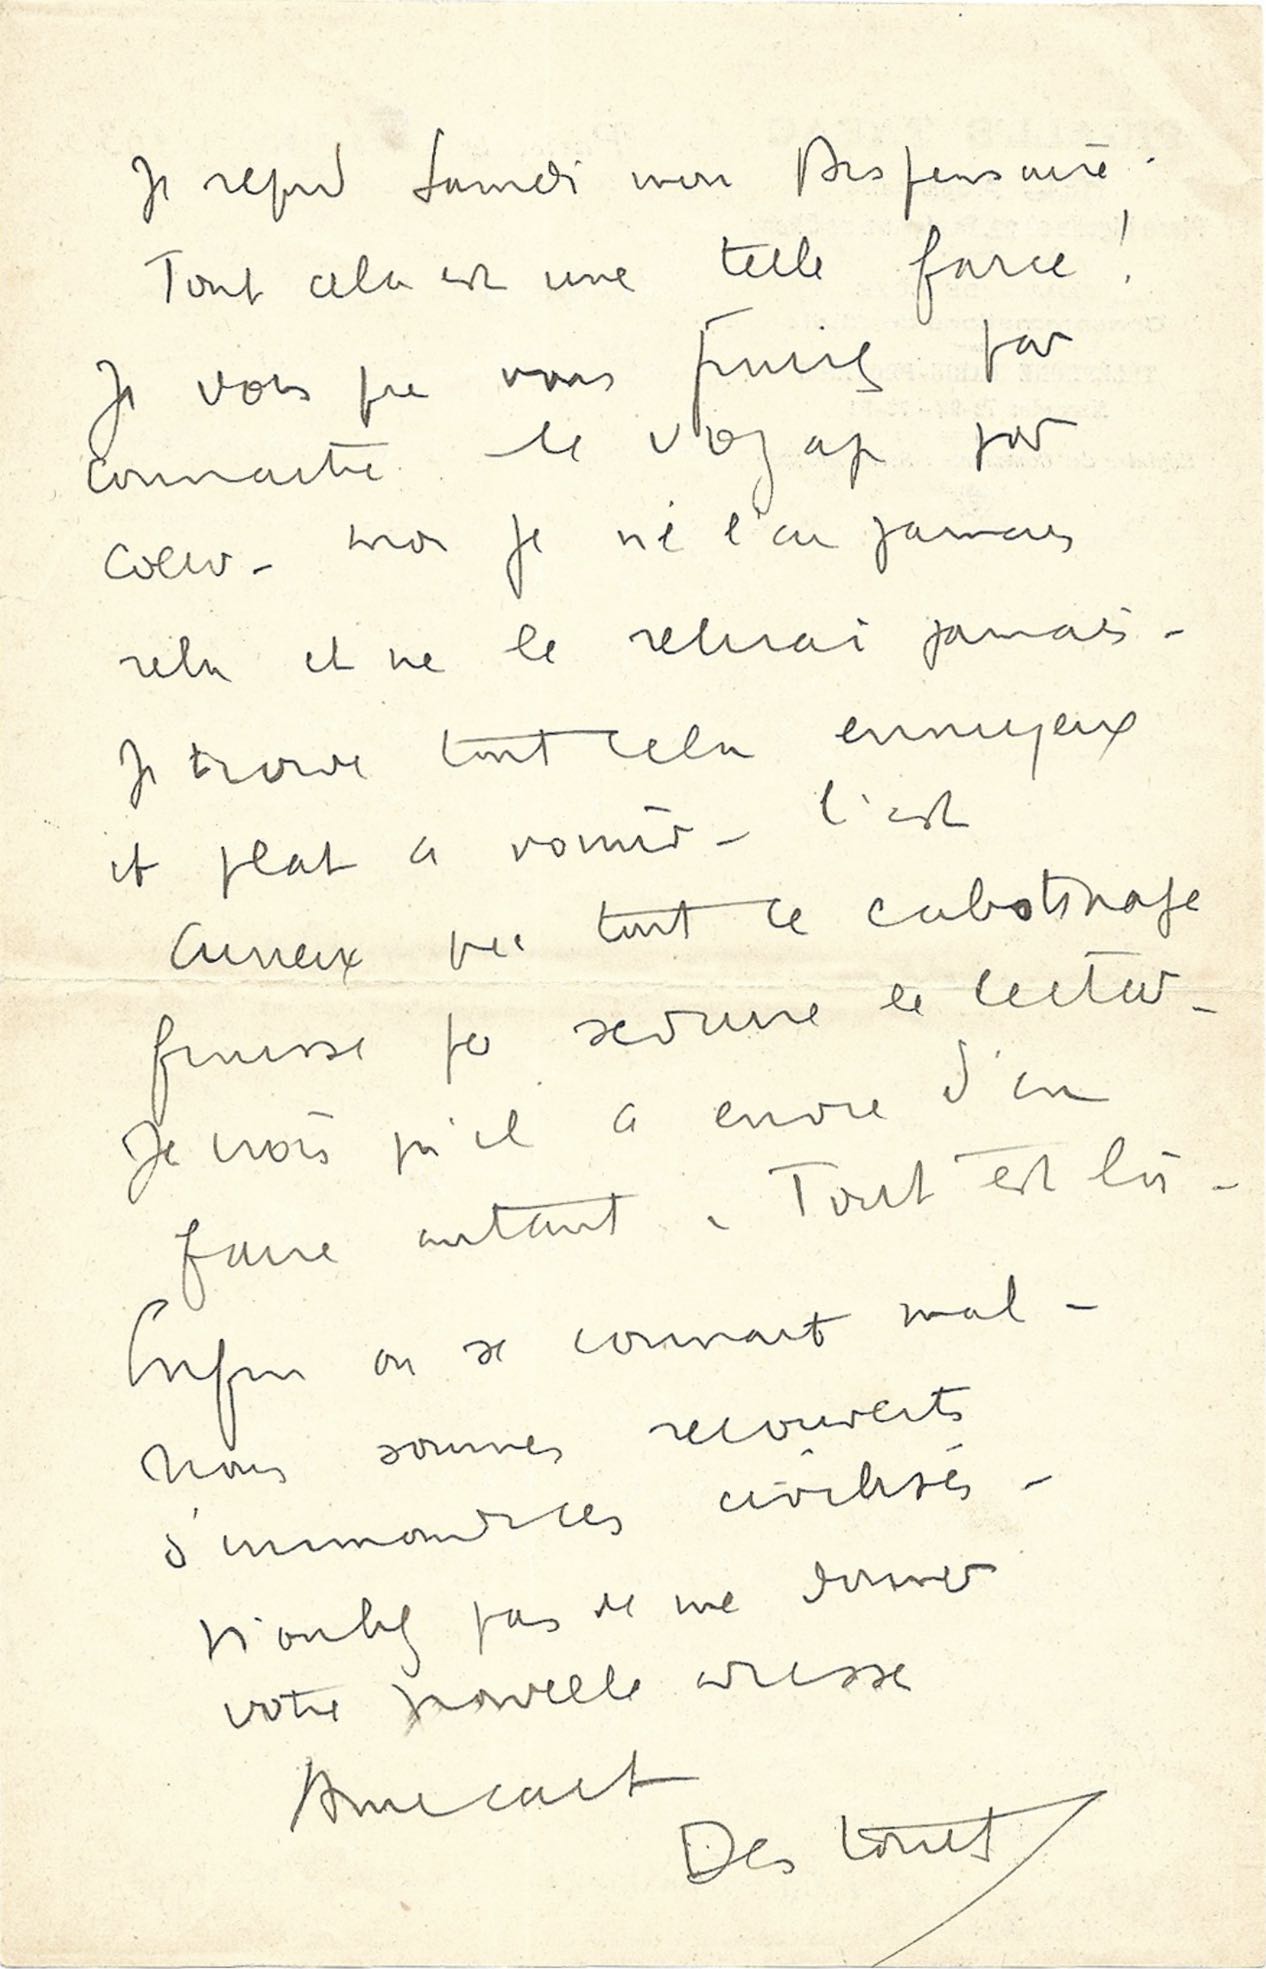 Je reprend Samedi mon Dispensaire.
Tout cela est une telle farce !
Je vois que vous finirez par
connaitre le voyage par
coeur - moi je ne l'ai jamais
relu et ne le relirai jamais -
Je trouve tout cela ennuyeux
et plat a vomir - C'est
curieux que tout ce cabotinage
puisse se le lecteur -
Je crois qu'il a envie d'en
faire autant. Tout est là -
Enfin on se connait mal -
nous sommes recouverts
d'immondices civilisés -
N'oubliez pas de me donner
votre nouvelle adresse
Amicalt
Des touches